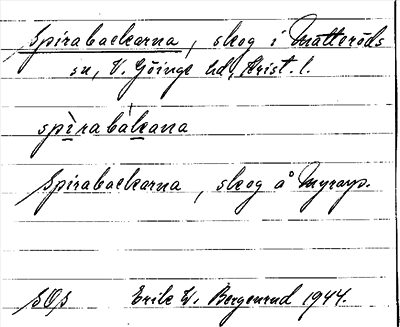 Spirabackarna, skog i Matteröds
sn, V. Göinge hd, Krist. l.
spìrabàkana
Spirabackarna, skog å Myrarp.
SOs Erik W. Bergenrud 1944.